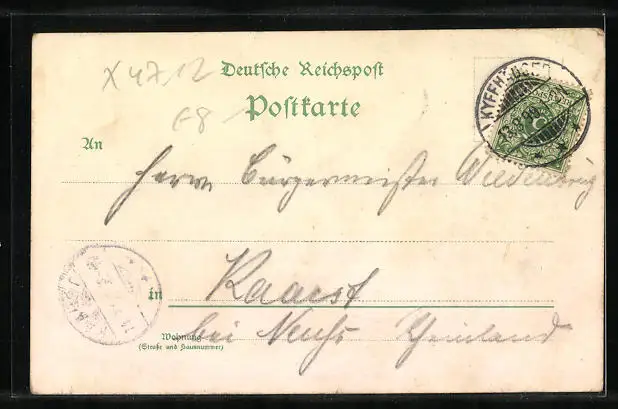 X 47.12
Deutsche Reichspost
Postkarte
KYFFHÄUSER
An
Herrn Bürgermeister
in Kaarst
Wohnung
(Straße und Hausnummer)
bei Neuß Rheinland
KAARST